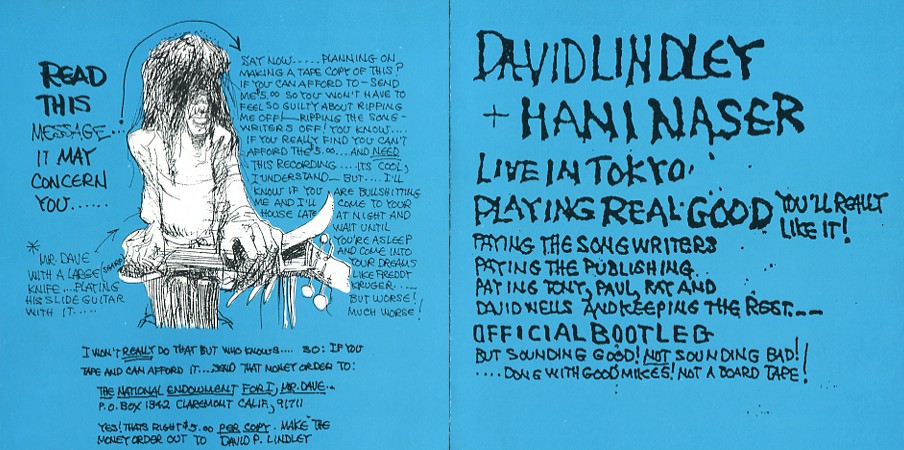 READ
THIS
MESSAGE...
IT MAY
CONCERN
YOU......
SAY NOW..... PLANNING ON
MAKING A TAPE COPY OF THIS?
IF YOU CAN AFFORD TO - SEND
ME $5.00 SO YOU WON'T HAVE TO
FEEL SO GUILTY ABOUT RIPPING
ME OFF - RIPPING THE SONG-
WRITERS OFF! YOU KNOW....
IF YOU REALLY FIND YOU CAN'T
AFFORD THE $5.00....AND NEED
THIS RECORDING.... ITS COOL,
I UNDERSTAND - BUT.... I'LL
KNOW IF YOU ARE BULLSHITTING
ME AND I'LL COME TO YOUR
HOUSE LATE AT NIGHT AND
WAIT UNTIL
YOU'RE ASLEEP
AND COME INTO
YOUR DREAMS
LIKE FREDDY
KRUGER....
BUT WORSE!
MUCH WORSE!
* MR. DAVE
WITH A LARGE SHARP
KNIFE....PLAYING
HIS SLIDE GUITAR
WITH IT.....
I WON'T REALLY DO THAT BUT WHO KNOWS.... SO: IF YOU
TAPE AND CAN AFFORD IT...SEND THAT MONEY ORDER TO:
THE NATIONAL ENDOWMENT FOR I, MR. DAVE...
P.O. BOX 1342 CLAREMONT CALIF, 91711
YES! THATS RIGHT $5.00 PER COPY. MAKE THE
MONEY ORDER OUT TO DAVID P. LINDLEY
DAVID LINDLEY
+ HANI NASER
LIVE IN TOKYO.
PLAYING REAL GOOD YOU'LL REALLY
LIKE IT!
PAYING THE SONGWRITERS
PAYING THE PUBLISHING
PAYING TONY, PAUL, RAY AND
DAVID WELLS AND KEEPING THE REST....
OFFICIAL BOOTLEG
BUT SOUNDING GOOD! NOT SOUNDING BAD!!
....DONE WITH GOOD MIKES! NOT A BOARD TAPE!